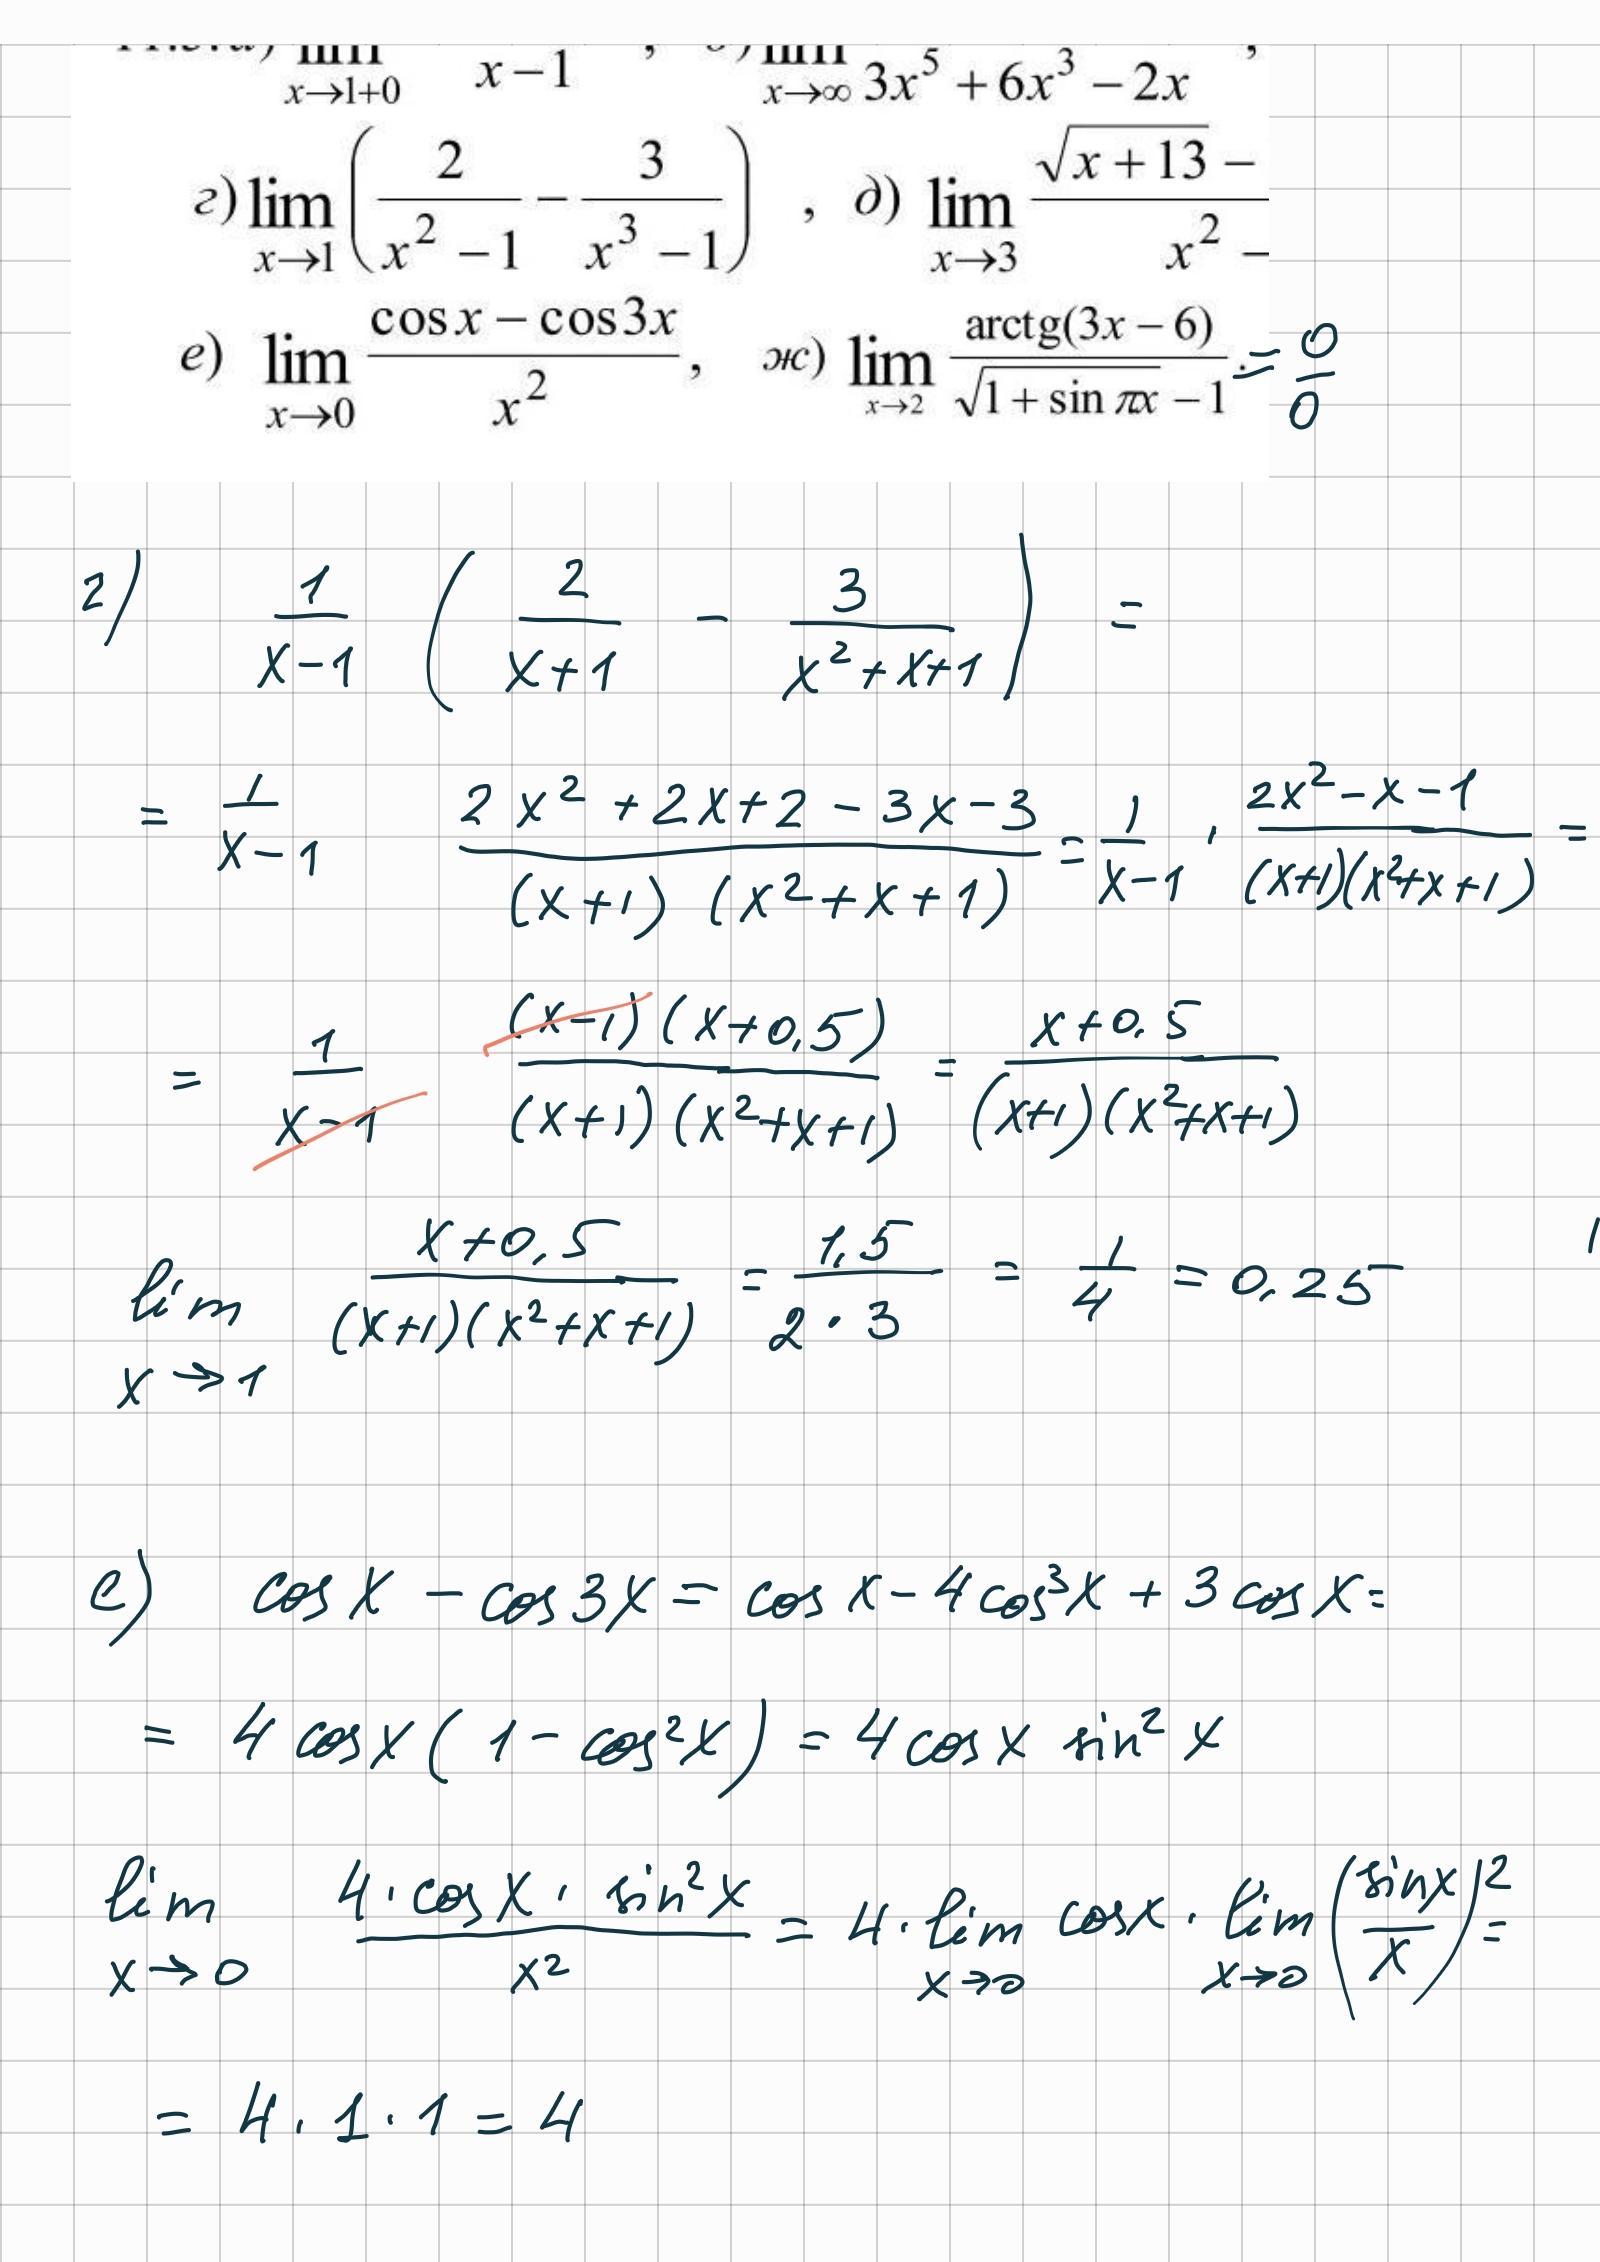 lim x→1+0 x−1 , lim x→∞ 3x⁵ + 6x³ − 2x ,
г) lim x→1 ( 2/(x² − 1) − 3/(x³ − 1) ) , д) lim x→3 √(x + 13) − / x² −
е) lim x→0 (cos x − cos 3x)/x² , ж) lim x→2 arctg(3x − 6)/(√(1 + sin πx) − 1) . = 0/0
г) 1/(x−1) ( 2/(x+1) − 3/(x²+x+1) ) =
= 1/(x−1) (2x² + 2x + 2 − 3x − 3)/((x+1)(x²+x+1)) = 1/(x−1) · (2x² − x − 1)/((x+1)(x²+x+1)) =
= 1/(x−1) (x−1)(x+0,5)/((x+1)(x²+x+1)) = (x+0,5)/((x+1)(x²+x+1))
lim x→1 (x+0,5)/((x+1)(x²+x+1)) = 1,5/(2·3) = 1/4 = 0,25
е) cos x − cos 3x = cos x − 4cos³x + 3cos x =
= 4 cos x (1 − cos²x) = 4 cos x sin² x
lim x→0 (4·cos x · sin²x)/x² = 4· lim x→0 cos x · lim x→0 (sin x/x)² =
= 4 · 1 · 1 = 4